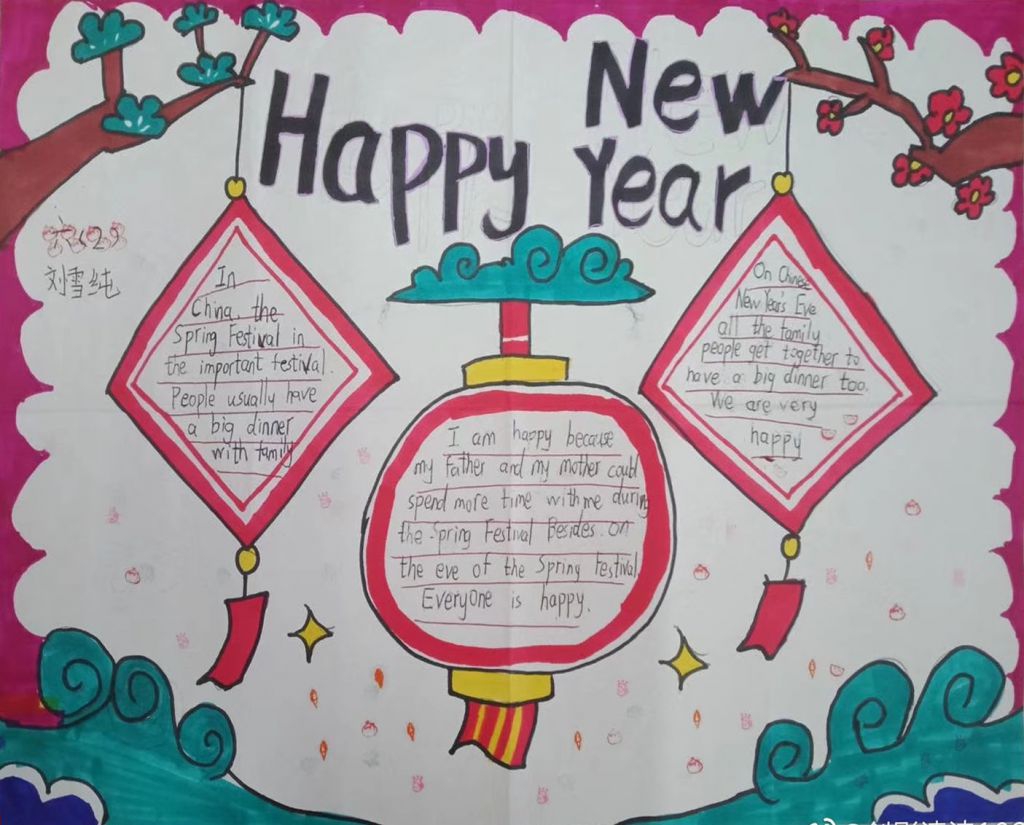 Happy New Year
刘雪纯
In
China, the
Spring Festival in
the important festival.
People usually have
a big dinner
with family
I am happy because
my Father and my mother could
spend more time with me during
the Spring Festival Besides. on
the eve of the Spring Festival.
Everyone is happy.
On Chinese
New Year's Eve
all the family
people get together to
have a big dinner too.
We are very
happy